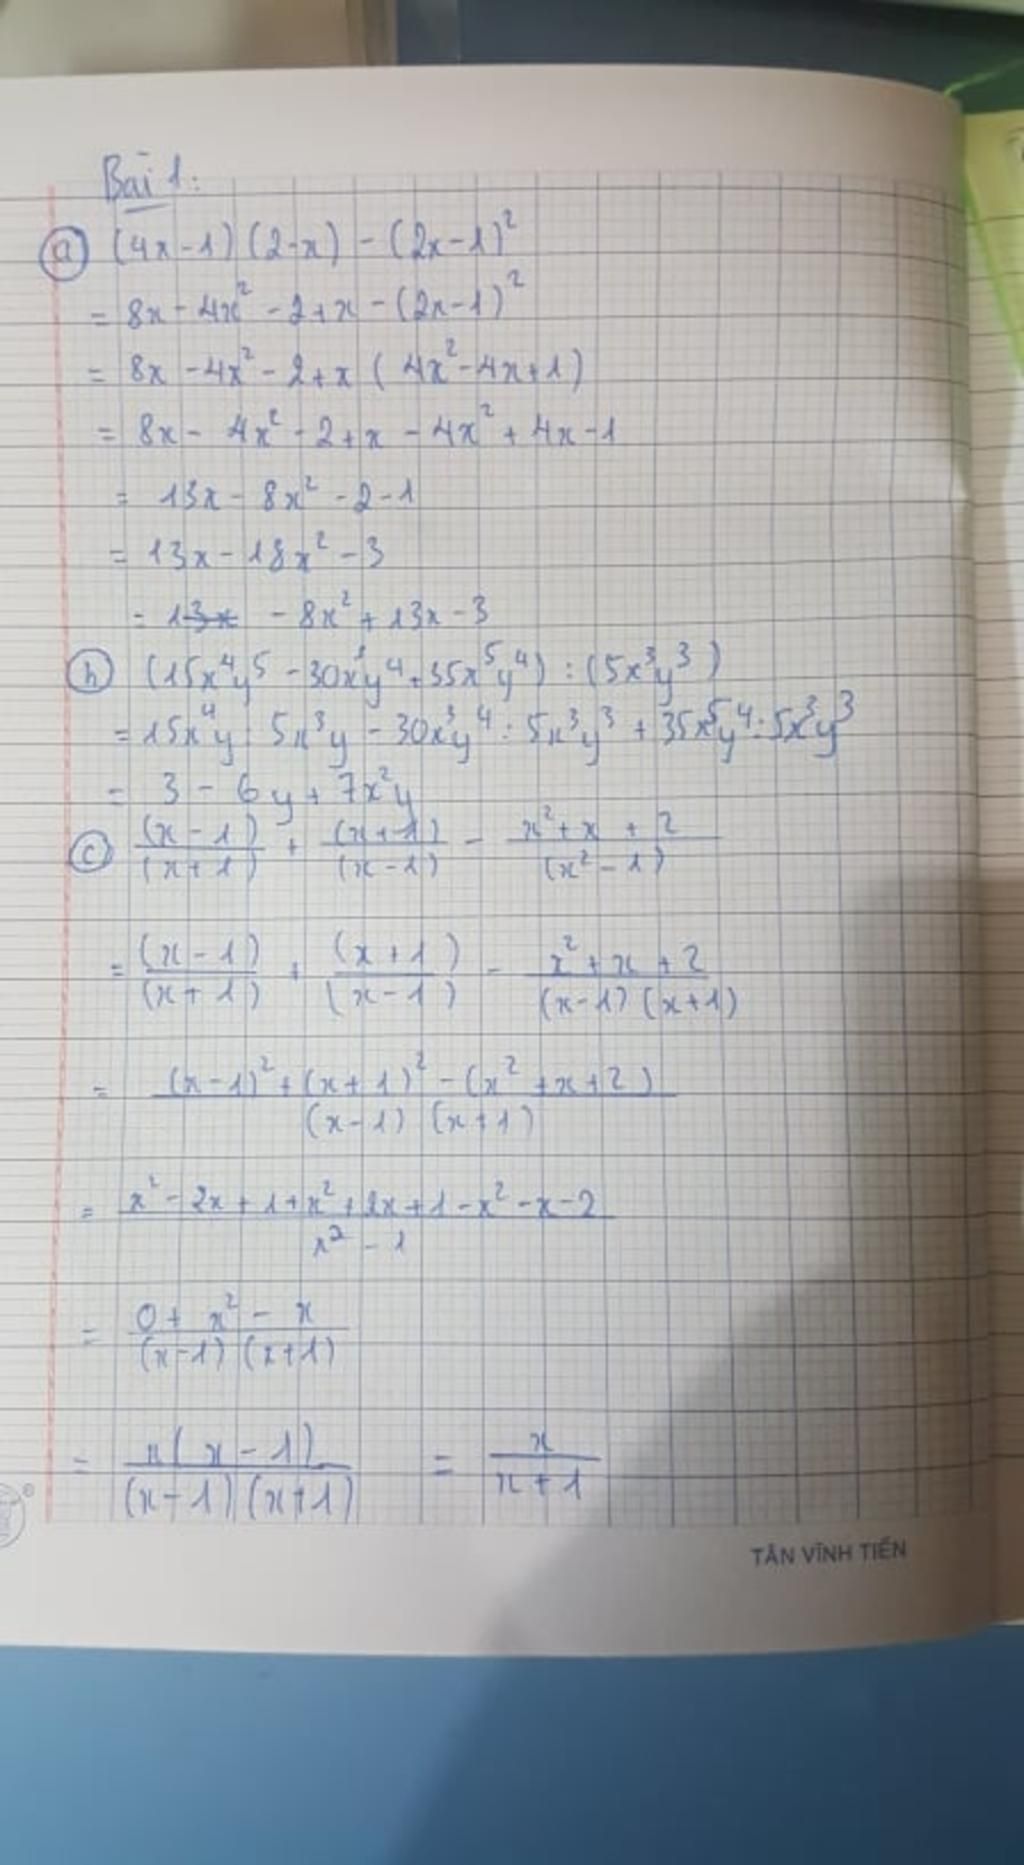 Bài 1:
a) (4x-1)(2-x) - (2x-1)²
= 8x - 4x² - 2 + x - (2x-1)²
= 8x - 4x² - 2 + x ( 4x² - 4x + 1)
= 8x - 4x² - 2 + x - 4x² + 4x - 1
= 13x - 8x² - 2 - 1
= 13x - 18x² - 3
= - 8x² + 13x - 3
b) (15x⁴y⁵ - 30x³y⁴ + 35x⁵y⁴) : (5x³y³)
= 15x⁴y : 5x³y - 30x³y⁴ : 5x³y³ + 35x⁵y⁴ : 5x³y³
= 3 - 6y + 7x²y
c) (x-1)/(x+1) + (x+1)/(x-1) - x²+x+2/(x²-1)
= (x-1)/(x+1) + (x+1)/(x-1) - x²+x+2/(x-1)(x+1)
= (x-1)²+(x+1)²-(x²+x+2)/(x-1)(x+1)
= x²-2x+1+x²+2x+1-x²-x-2/x²-1
= 0+x²-x/(x-1)(x+1)
= x(x-1)/(x-1)(x+1) = x/x+1
TÂN VĨNH TIẾN